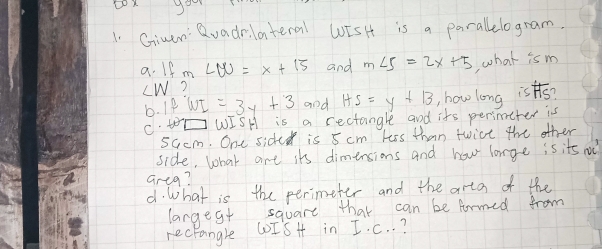 box your
1. Given: Quadrilateral WISH is a parallelogram.
a. If m ∠W = x + 15 and m∠S = 2x +5, what is m
∠W ?
b. If WI = 3y + 3 and HS = y + 13, how long is HS?
c. □ WISH is a rectangle and its perimeter is
54cm. One side is 5 cm less than twice the other
side. What are its dimensions and how large is its
area?
d. What is the perimeter and the area of the
largest square that can be formed from
rectangle WISH in I.c..?